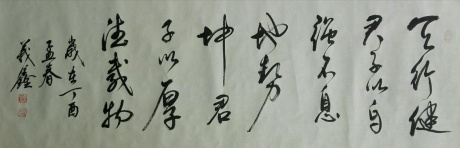 天行健
君子以自
强不息
地势
坤君
子以厚
德载物
岁在丁酉
孟春
義鑫